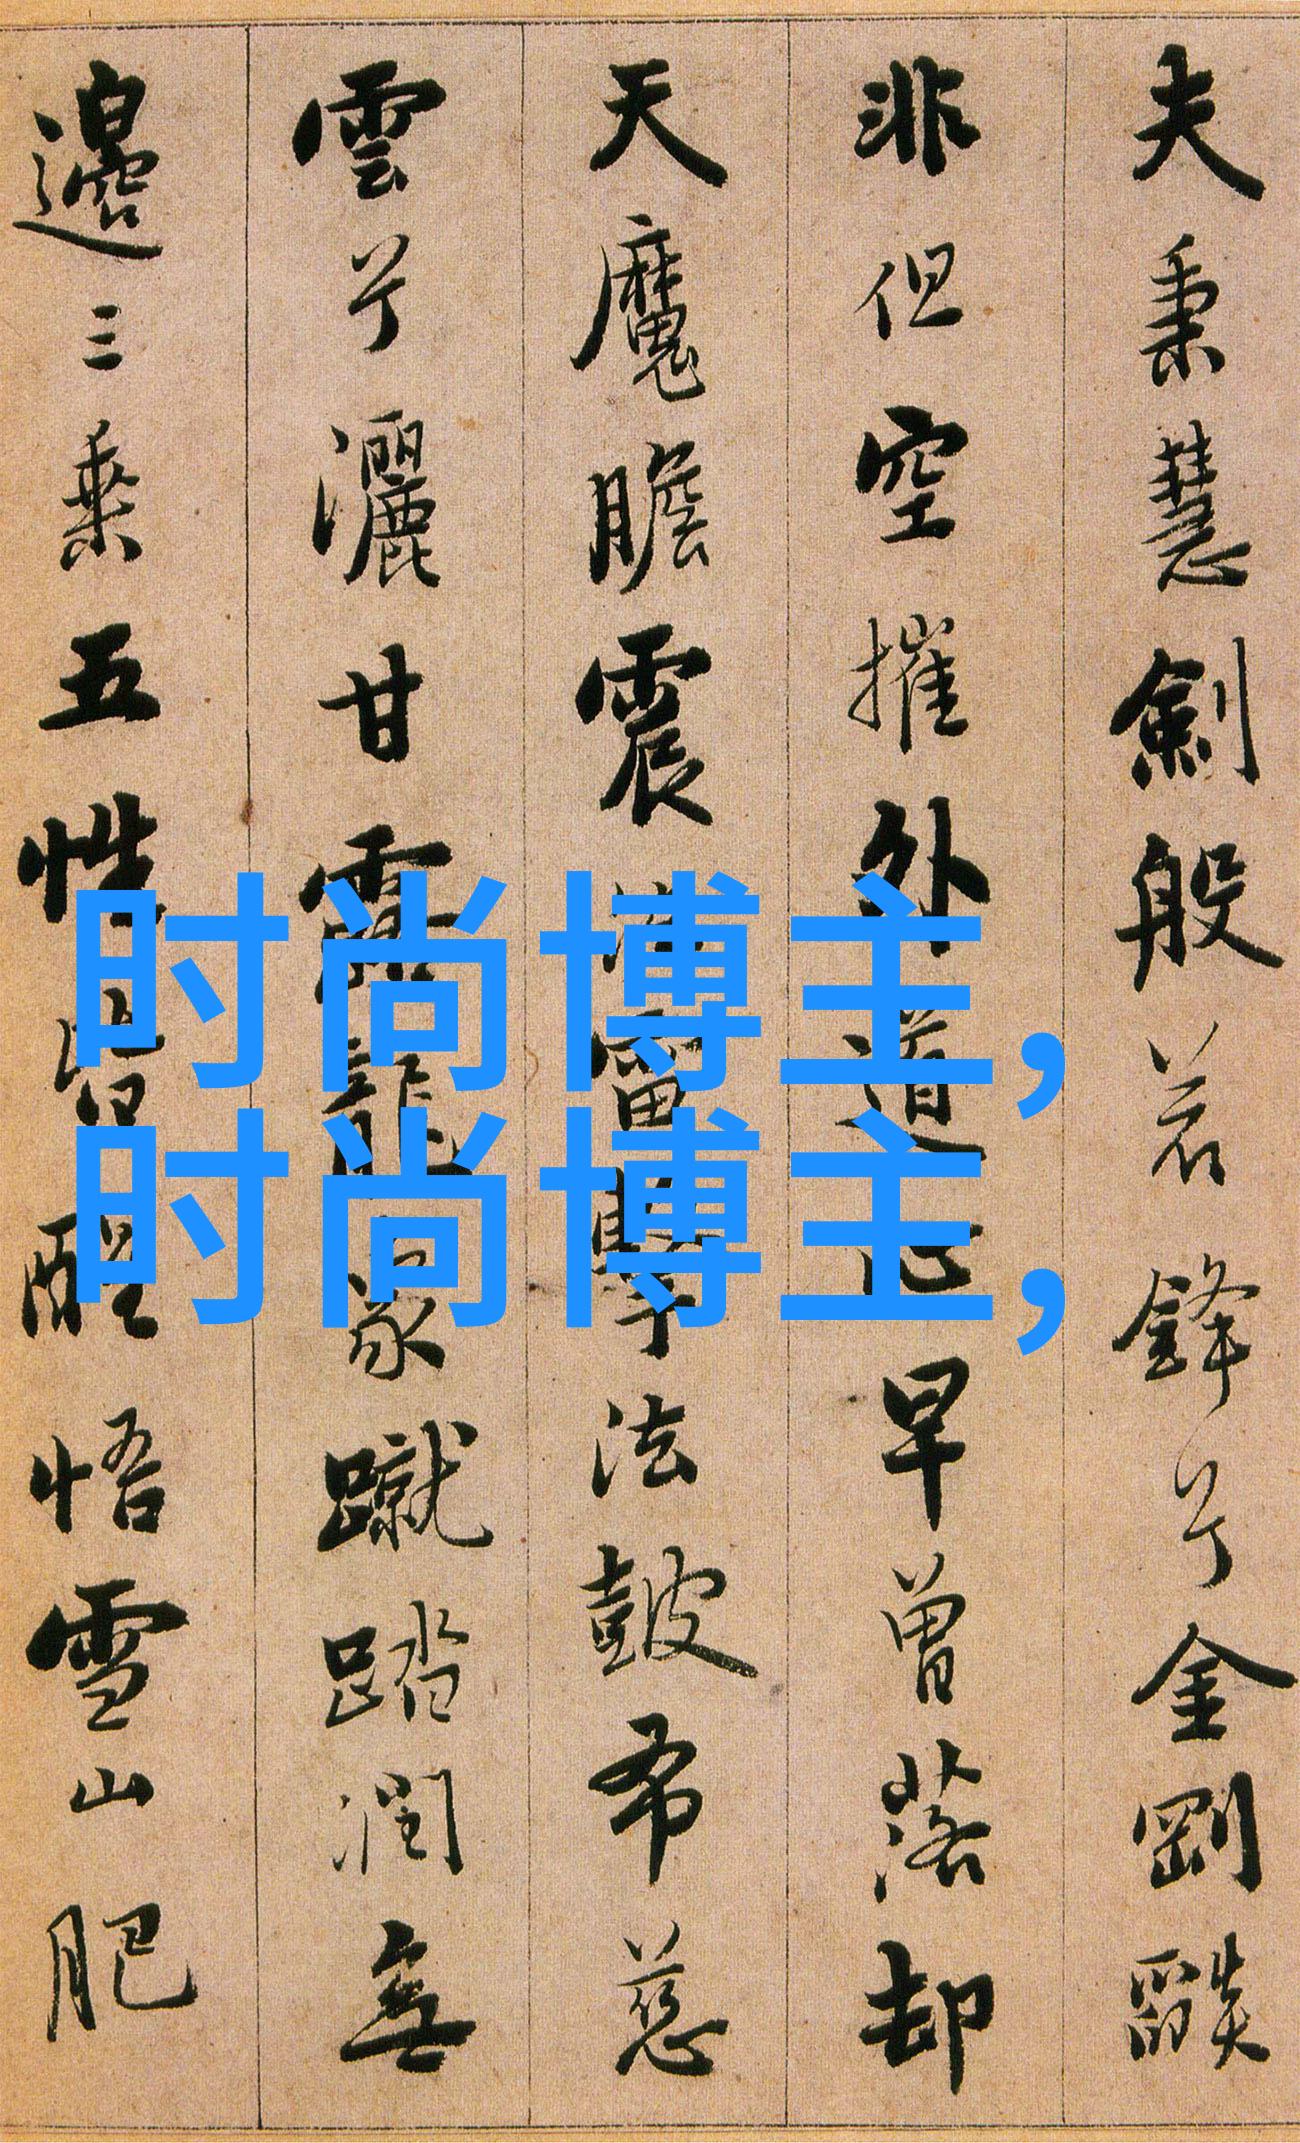 夫秉慧劍般若鋒兮金剛燄
非但空摧外道心早曾落却
天魔膽震法雷擊法皷布慈
雲兮灑甘露龍象蹴踏潤無
邊三乘五性皆醒悟雪山肥
时尚博主，
时尚博主，